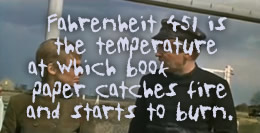 Fahrenheit 451 is
the temperature
at which book
paper catches fire
and starts to burn.